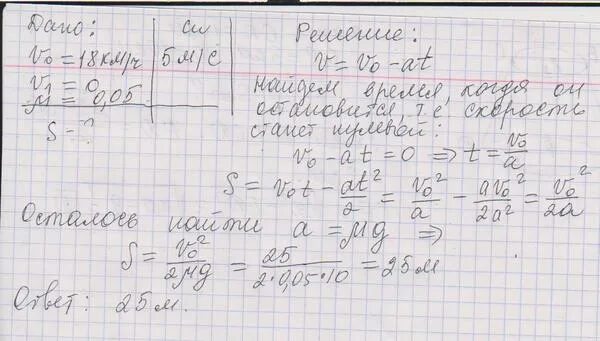 Дано: | Си | Решение:
v₀ = 18 км/ч | 5 м/с | v = v₀ - at
v₁ = 0
μ = 0,05
S - ?
Найдем время, когда он
остановится, т.е. скорость
станет нулевой:
v₀ - at = 0 => t = v₀/a
S = v₀t - at²/2 = v₀²/a - av₀²/2a² = v₀²/2a
Осталось найти a = μg =>
S = v₀²/2μg = 25/2·0,05·10 = 25 м
Ответ: 25 м.